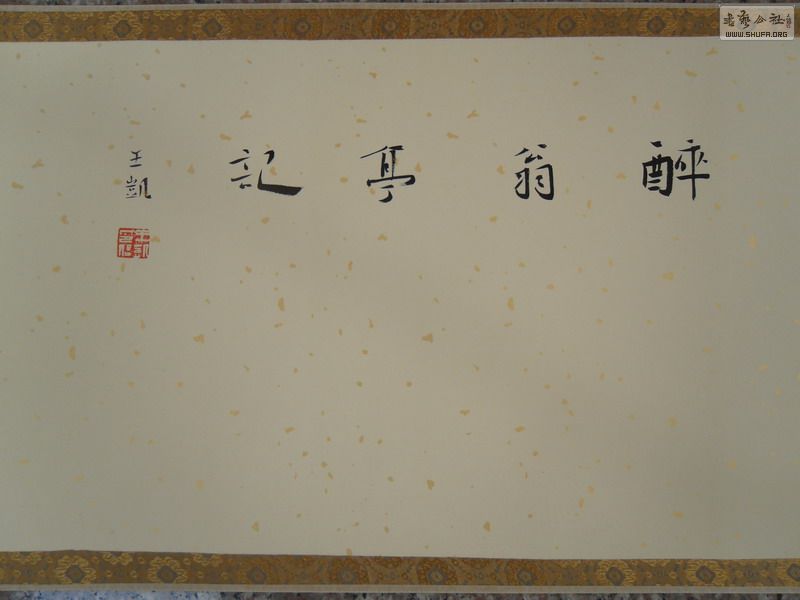 醉翁亭記
王凱
書藝公社
WWW.SHUFA.ORG